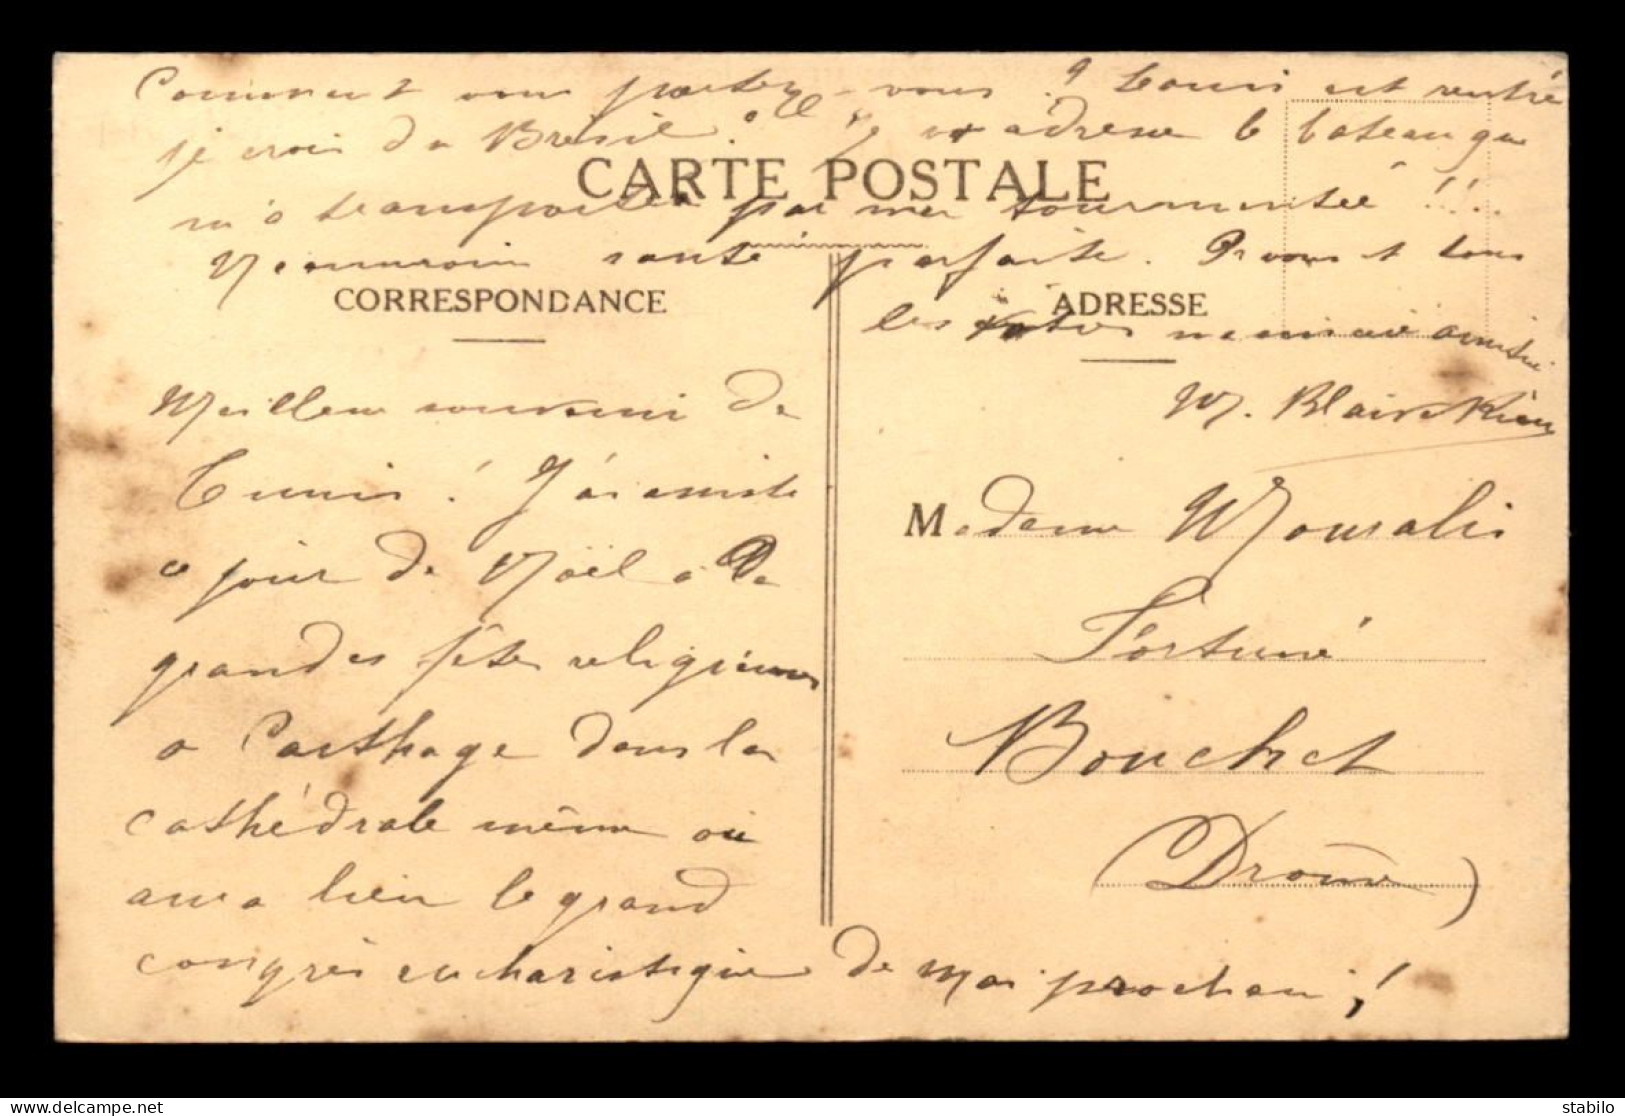 Comment vous portez-vous ? Louis est rentré
je crois du Brésil. Je vous adresse le bateau qui
m'a transporté par mer tourmentée !!!
CARTE POSTALE
Néanmoins santé parfaite. A vous et tous
les vôtres mon amitié
M. Blaive
CORRESPONDANCE
Meilleur souvenir de
Tunis ! J'ai assisté
ce jour de Noël à de
grandes fêtes religieuses
à Carthage dans la
cathédrale même où
aura lieu le grand
congrès eucharistique de Mai prochain !
ADRESSE
Madame Moursalis
Fortuné
Bouchet
(Drôme)
stabilo